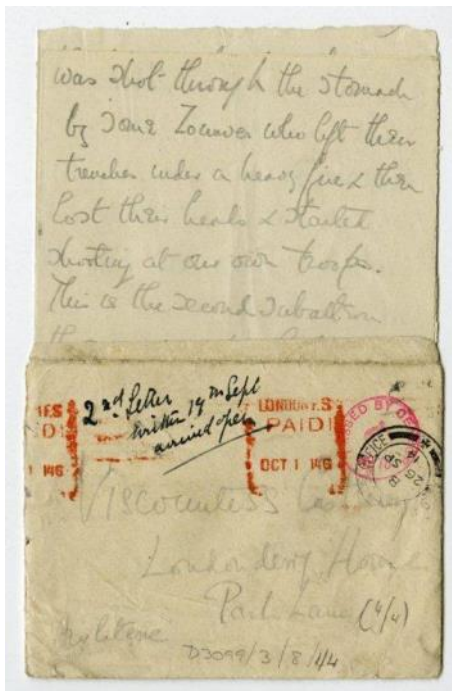 was shot through the stomach
by some Zouaves who left their
trenches under a heavy fire & then
lost their heads & started
shooting at our own troops.
This is the second subaltern
2nd Letter
written 19th Sept
arrived open
LONDON F.S.
PAID
OCT 1 14
Viscountess Castlereagh
Londonderry House
Park Lane
(4/4)
Angleterre
D3099/3/8/1/4